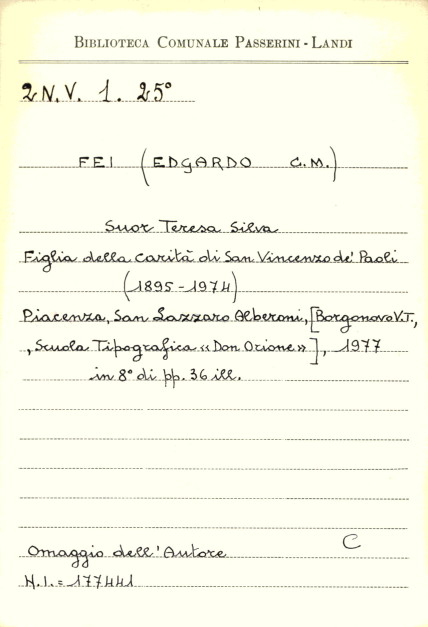 BIBLIOTECA COMUNALE PASSERINI - LANDI
2 N.V. 1. 25°
FEI (EDGARDO C.M.)
Suor Teresa Silva
Figlia della Carità di San Vincenzo de' Paoli
(1895-1974)
Piacenza, San Lazzaro Alberoni, [Borgonovo V.T.,
, Scuola Tipografica «Don Orione»], 1977
in 8° di pp. 36 ill.
C
Omaggio dell'Autore
N.I. = 177441